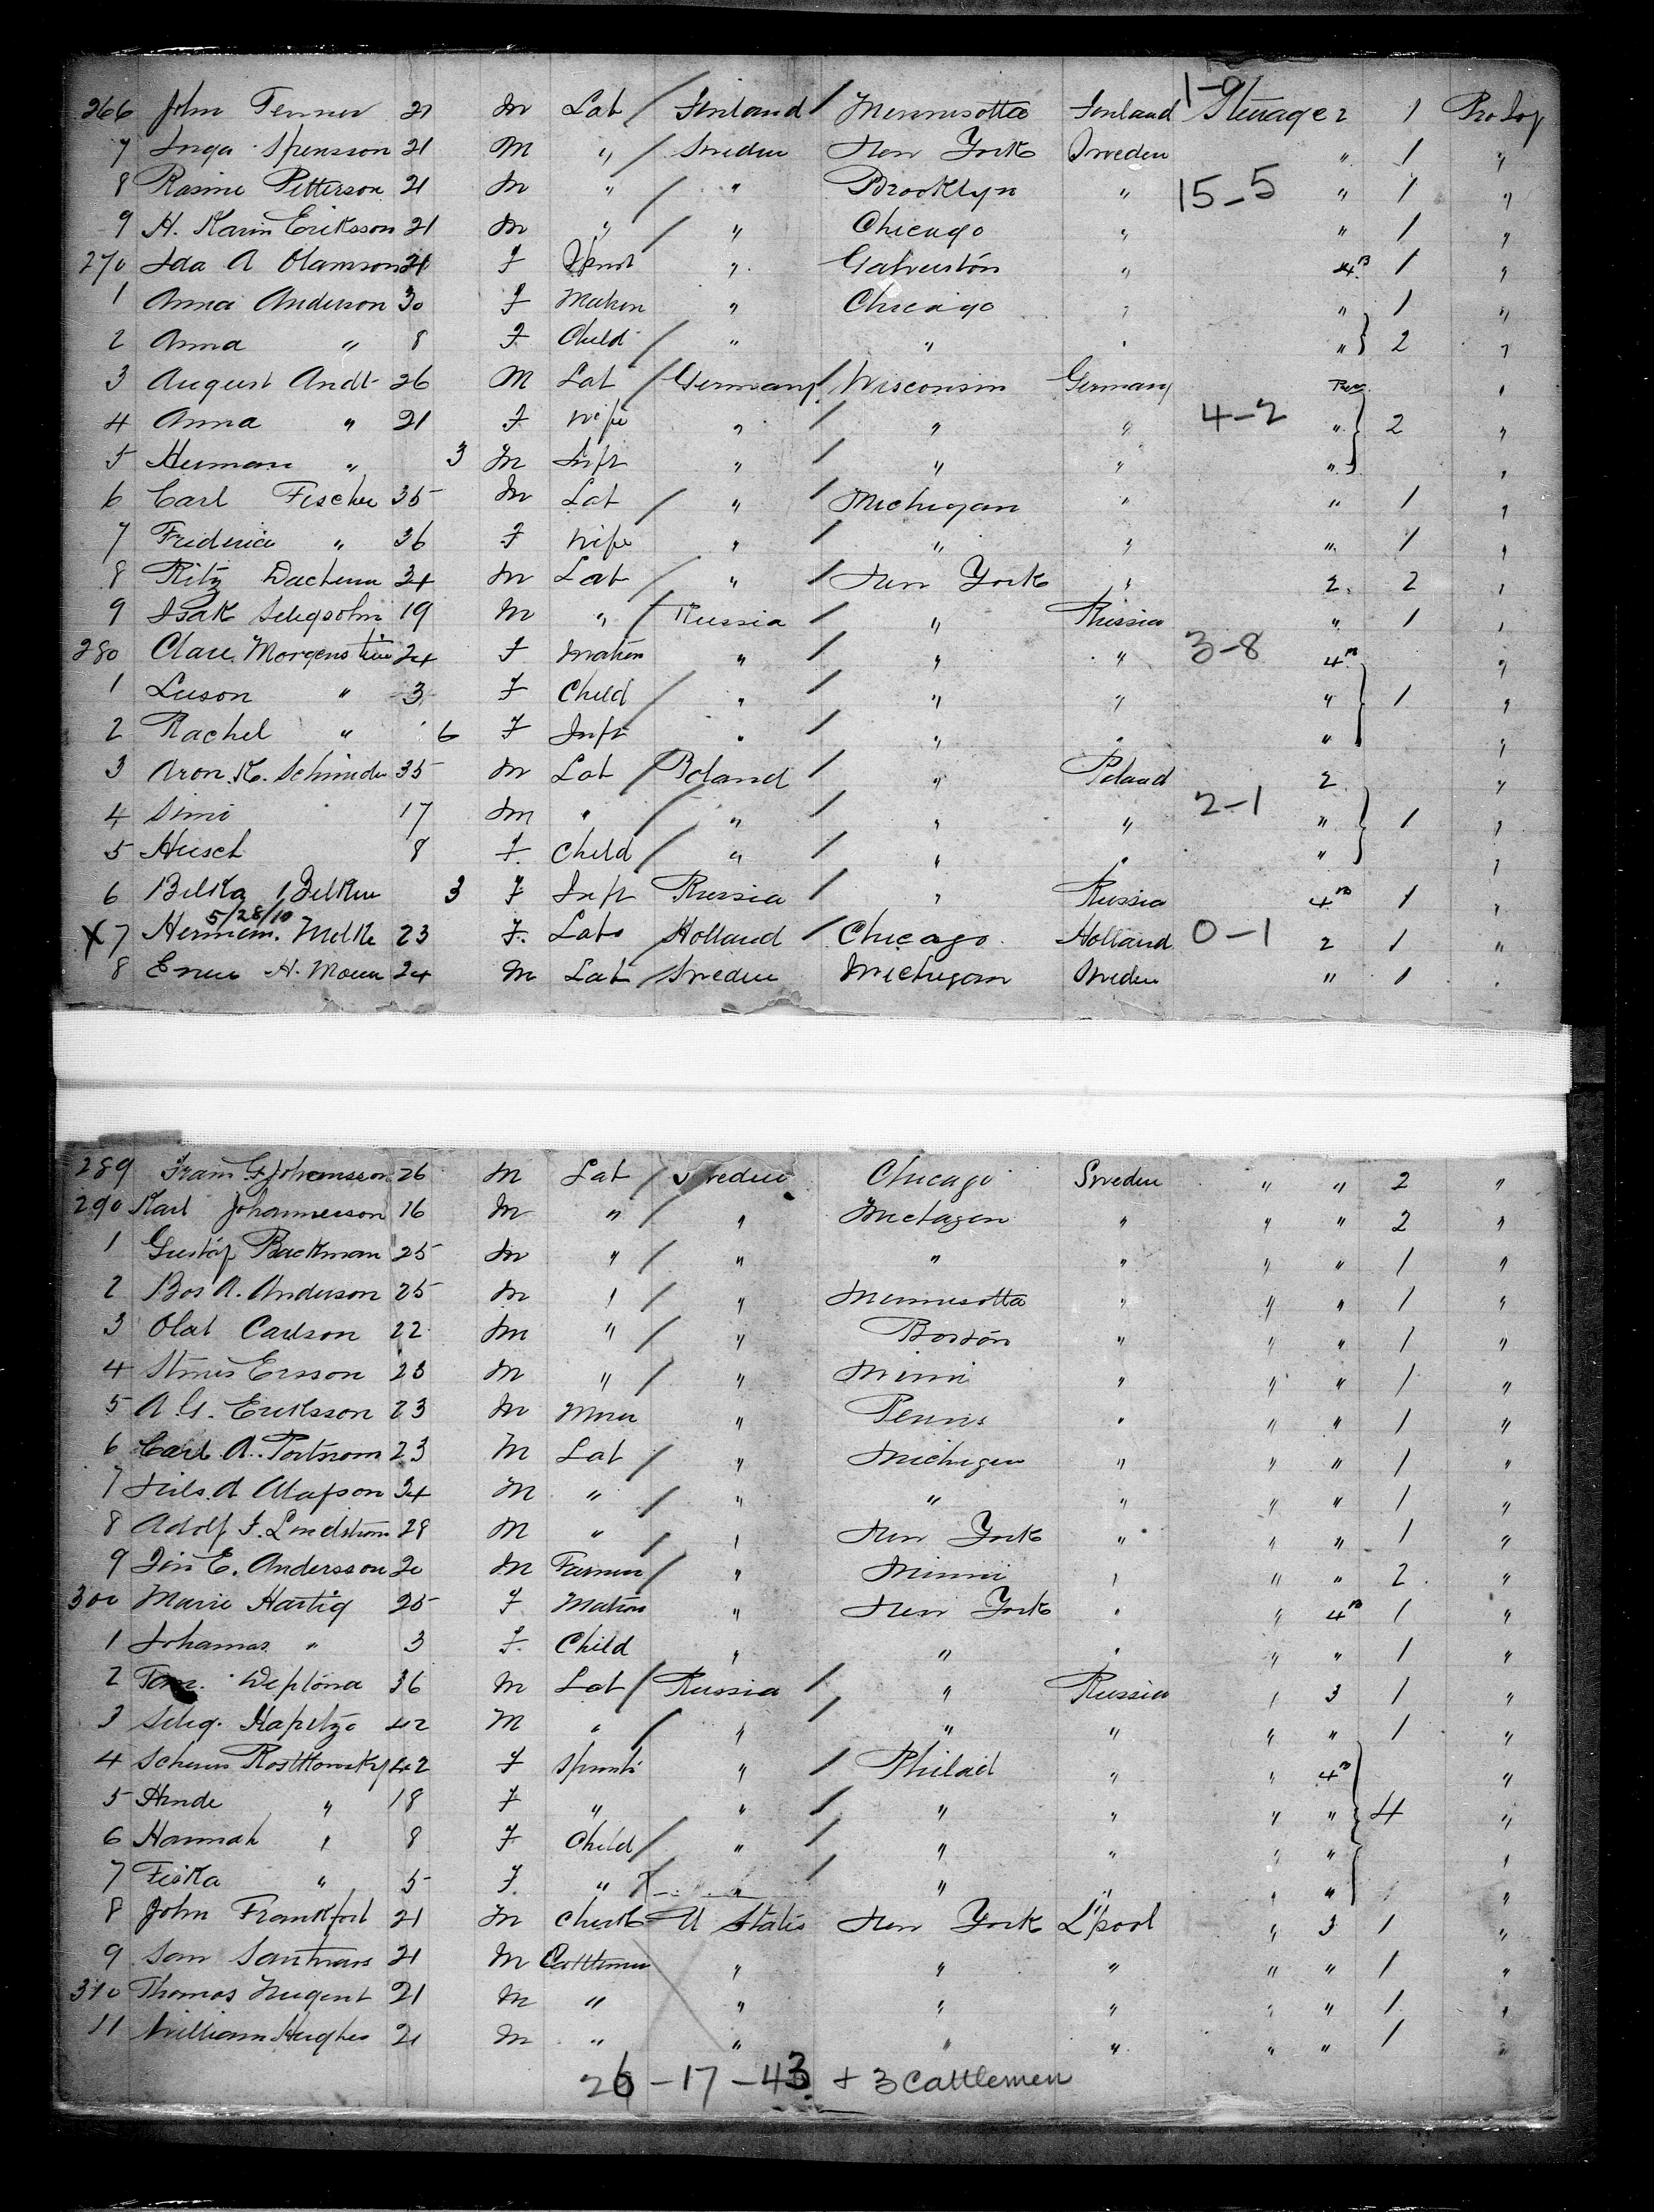 1-0
266 John Fenner 21 M Lab / Finland / Minnesotta Finland Steerage 2 1 Pro Soj
7 Inga Spensson 21 M " / Sweden New York Sweden " 1 "
8 Petterson 21 M " / " Brooklyn " 15-5 " 1 "
9 H. Karin Eriksson 21 M " / " Chicago " " 1 "
270 Ida A Olamson 21 F Spinst " Galveston " 4 1 "
1 Anna Anderson 30 F Matron " Chicago " " 1 "
2 Anna " 8 F Child / " " " " } 2 "
3 August Andt 26 M Lab / Germany / Wisconsin Germany "
4 Anna " 21 F Wife " / " " 4-2 " } 2 "
5 Herman " 3 M Inft " / " " " "
6 Carl Fischer 35 M Lab / " / Michigan " " 1 "
7 Friderica " 36 F Wife " / " " " 1 "
8 Fritz 24 M Lab / " / New York " 2 2 "
9 Isak Seligsohn 19 M " / Russia / " Russia " 1 "
280 Clare Morgenstein 24 F Matron " / " " 3-8 4 "
1 Luson " 3 F Child / " / " " " } 1 "
2 Rachel " 6 F Inft " / " " " "
3 Aron K. Schneider 35 M Lab / Poland / " Poland 2 "
4 Simi 17 M " / " / " " 2-1 " } 1 "
5 Husch 8 F. Child / " / " " " "
6 Belka 3 F Inft Russia / " Russia 4 1 "
5/28/10
X 7 Hermem. Melke 23 F. Lab Holland / Chicago Holland 0-1 2 1 "
8 H. 24 M Lab / Sweden Michigan Sweden " 1 "
289 Fram G Johansson 26 M Lab / Sweden Chicago Sweden " " 2 "
290 Karl Johannesson 16 M " / " " " " 2 "
1 Gustaf Backman 25 M " / " " " " " 1 "
2 Bos A. Anderson 25 M " / " Minnesotta " " " 1 "
3 Olat Carlson 22 M " / " Boston " " " 1 "
4 Ersson 23 M " / " Minni " " " 1 "
5 A G. Eriksson 23 M Miner " Penns " " " 1 "
6 Carl A. Portnom 23 M Lab / " Michigan " " " 1 "
7 Nils A Olafson 24 M " / " " " " " 1 "
8 Adolf F. Lindstrom 28 M " / " New York " " " 1 "
9 Jon E. Andersson 20 M Farmer / " Minni " " " 2 "
300 Marie Hartig 25 F Matron " New York " " 4 1 "
1 Johannes " 3 F. Child " " " " " 1 "
2 36 M Lab / Russia / " Russia " 3 1 "
3 Selig. 42 M " / " / " " " " 1 "
4 Rostkowsky 42 F Spinst " / Philad " " 4 "
5 Hinde " 18 F " " / " " " " } 4 "
6 Hannah " 8 F Child / " / " " " " "
7 Feska " 5 F. " / " / " " " " "
8 John Frankfort 21 M Clerk U States New York L'pool " 3 1 "
9 Sam 21 M Cattleman " " " " " 1 "
310 Thomas Nugent 21 M " " " " " " 1 "
11 William Hughes 21 M " " " " " " 1 "
26 - 17 - 43 + 3 Cattlemen